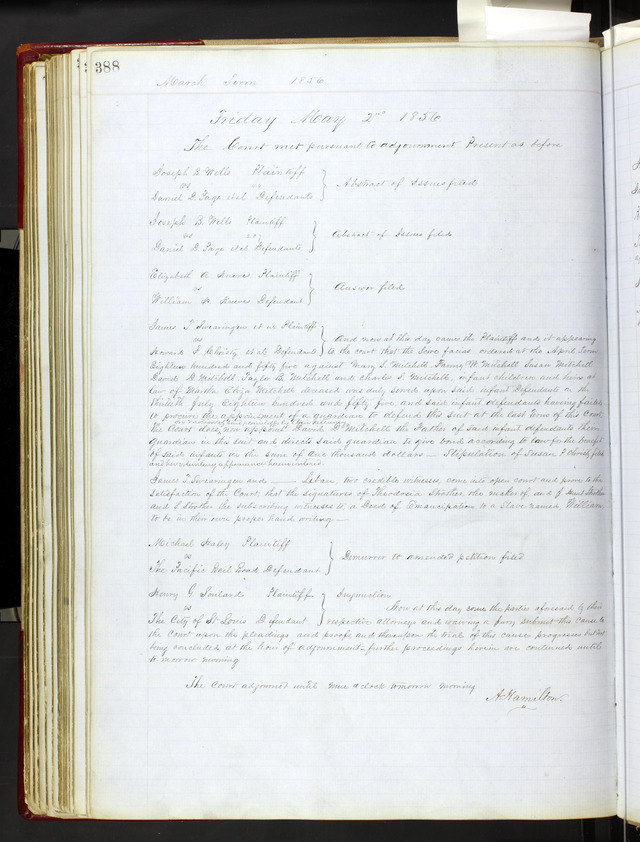 388
March Term 1856
Friday May 2nd 1856
The Court met pursuant to adjournment Present as before
Joseph B Wells Plaintiff
vs
Daniel D Page et al Defendants
Abstract of Issues filed
Joseph B Wells Plaintiff
vs
Daniel D Page et al Defendants
Abstract of Issues filed
Elizabeth A Plaintiff
vs
William Defendant
Answer filed
James T Swearingen et ux Plaintiffs
vs
Howard F Christy et al Defendants
And now at this day came the Plaintiff and it appearing
to the court that the Scire facias ordered at the April Term
Eighteen hundred and fifty five against Mary S Mitchell Fanny W Mitchell Susan Mitchell
David D Mitchell Taylor B Mitchell and Charles S. Mitchell, infant children and heirs at
Law of Martha Eliza Mitchell deceased was duly served upon said infant Defendants on the
thirtieth July Eighteen hundred and fifty five and said infant defendants having failed
to procure the appointment of a guardian to defend this suit at the last term of this Court
on motion of said plaintiff by
The Court does now appoint David D Mitchell the Father of Said infant defendants their
Guardian in this suit and directs said guardian to give bond according to law for the benefit
of said infants in the sum of one thousand dollars — Stipulation of Susan P Christy filed
and her voluntary appearance herein entered
James T Swearingen and — Leban two credible witnesses, come into open court and prove to the
satisfaction of the Court, that the signatures of Theodosia Strother, the maker of, and J Hunt Strother
and S Strother the subscribing witnesses to, a Deed of Emancipation to a Slave named William,
to be in their own proper hand writing —
Michael Haley Plaintiff
vs
The Pacific Rail Road Defendant
Demurrer to amended petition filed
Henry G. Soulard Plaintiff
vs
The City of St Louis Defendant
Injunction
Now at this day come the parties aforesaid by their
respective attorneys and waiving a Jury submit this cause to
the Court upon the pleadings and proofs, and thereupon the trial of this cause progresses but not
being concluded at the hour of adjournment further proceedings herein are continued until
tomorrow morning
The Court adjourned until nine oclock tomorrow morning
A Hamilton